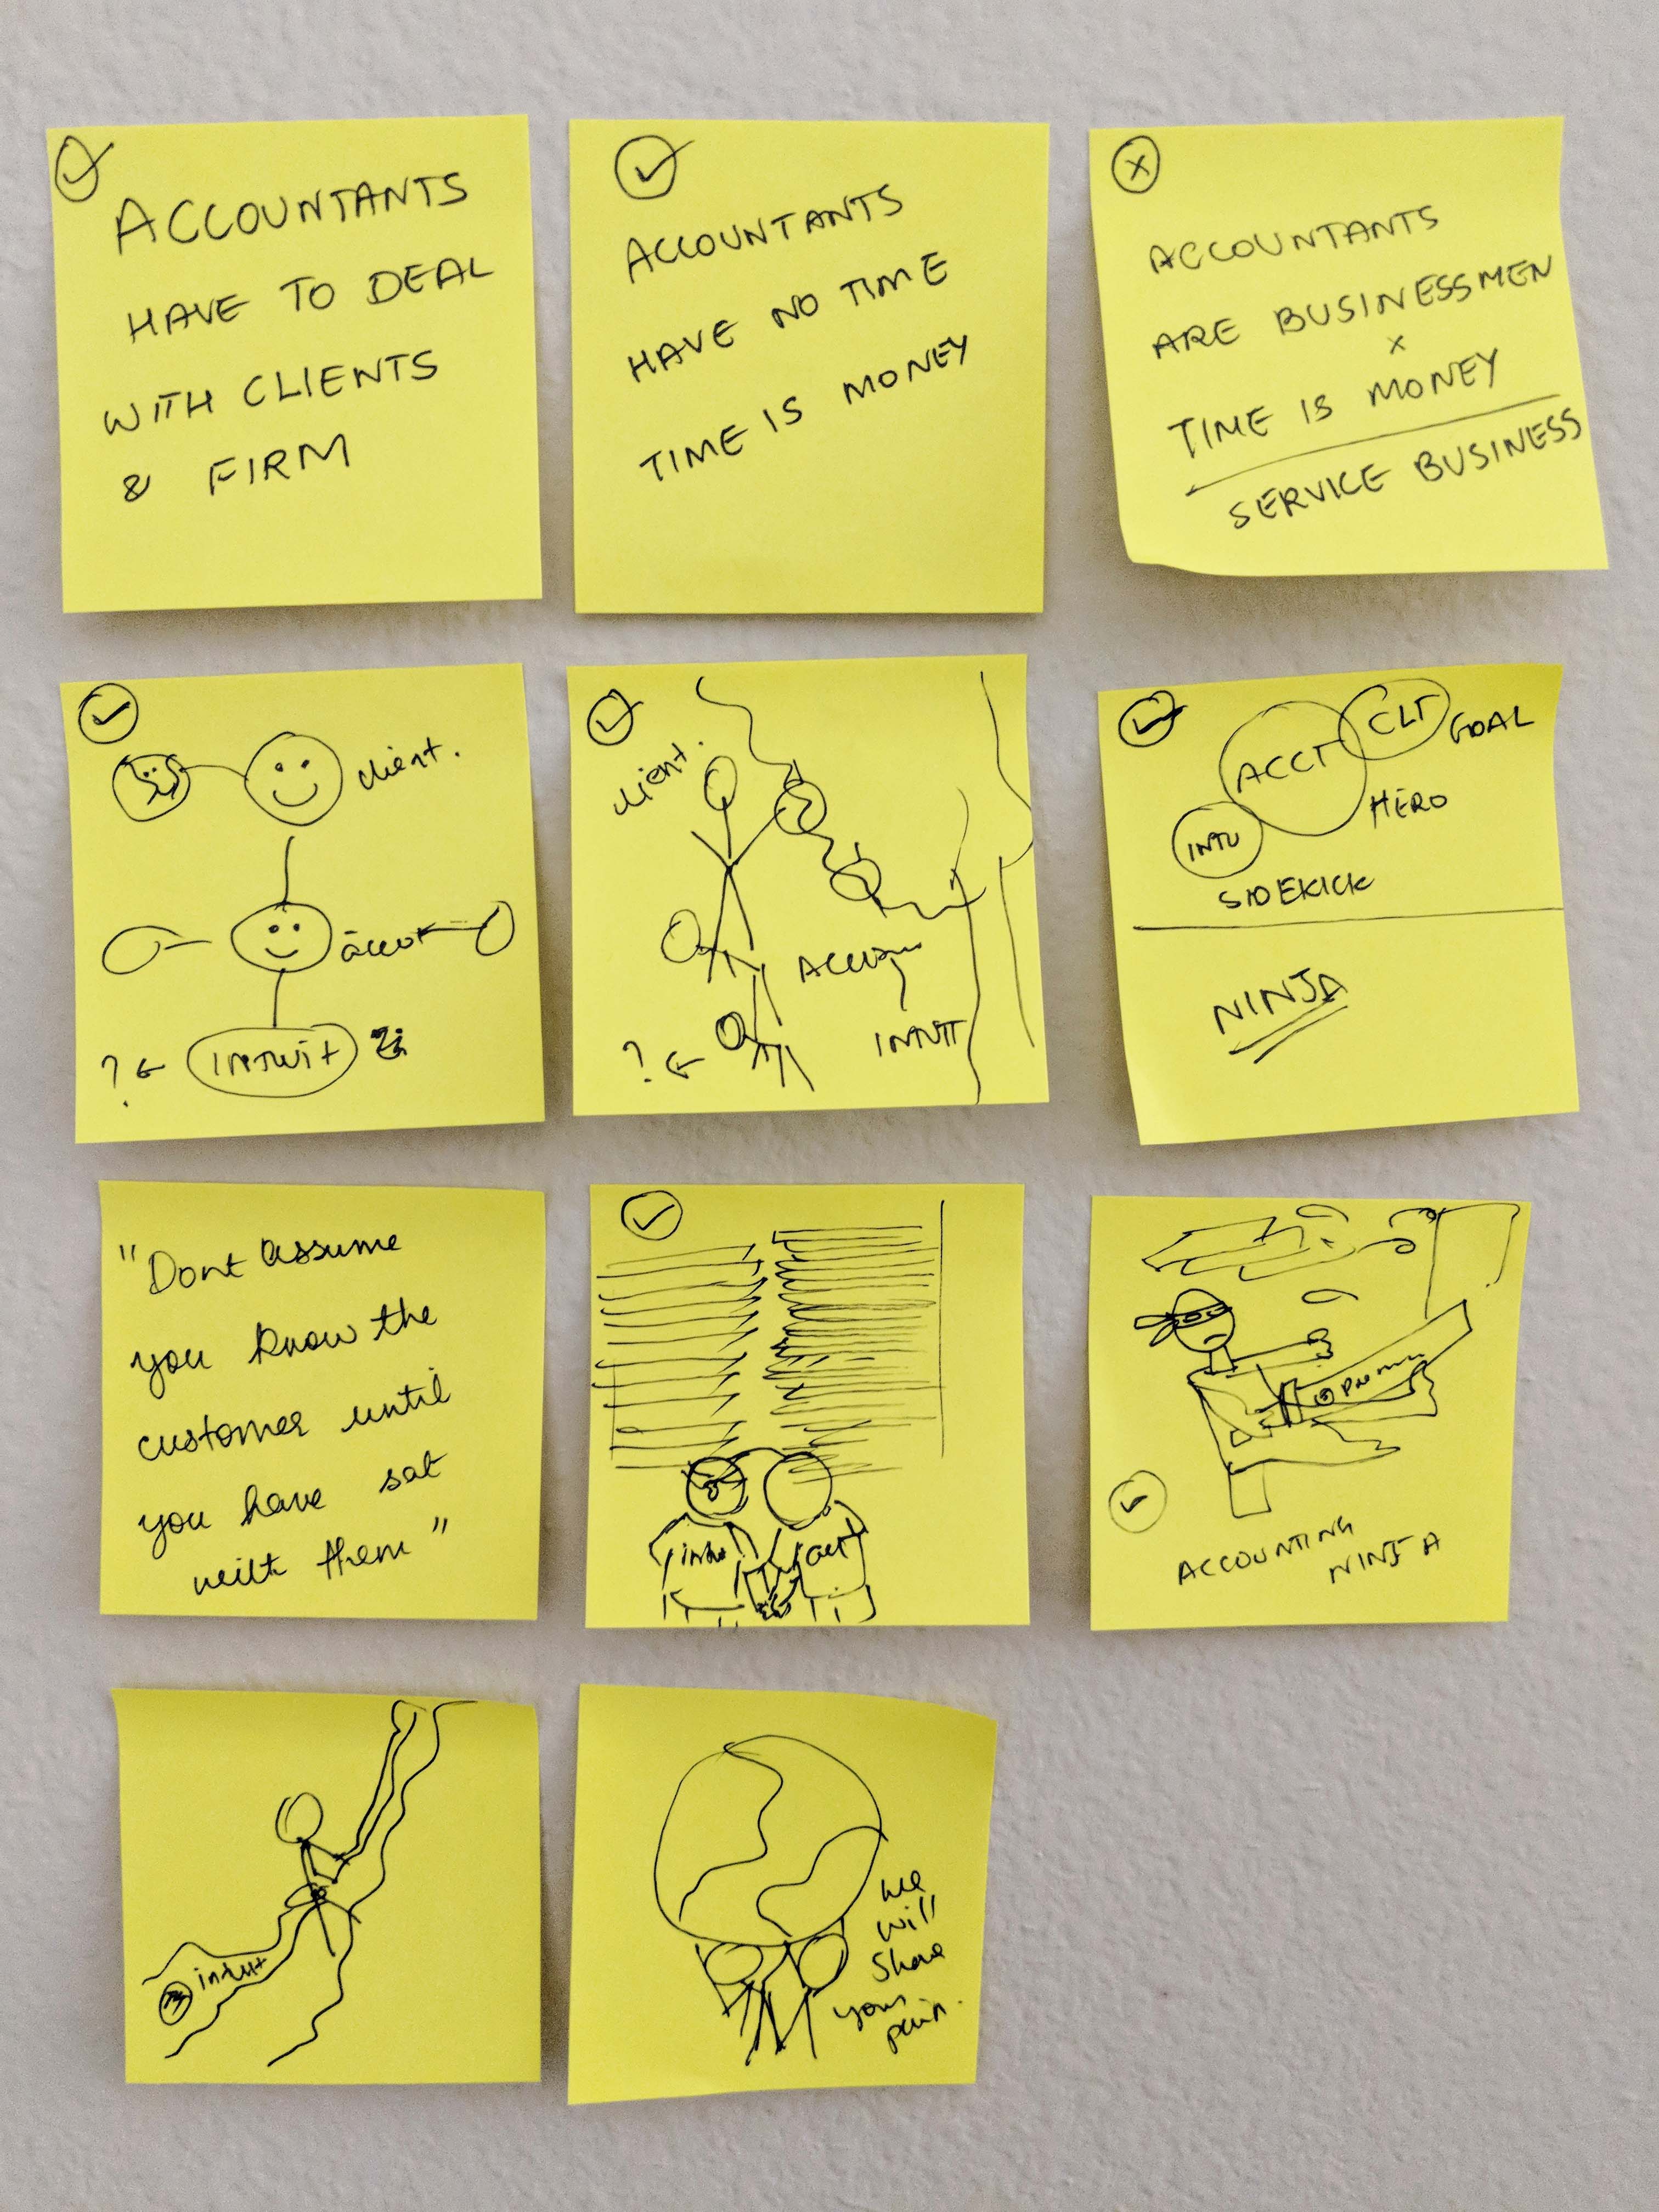 ACCOUNTANTS
HAVE TO DEAL
WITH CLIENTS
& FIRM
ACCOUNTANTS
HAVE NO TIME
TIME IS MONEY
X
ACCOUNTANTS
ARE BUSINESSMEN
x
TIME IS MONEY
SERVICE BUSINESS
client.
?
INTUIT
client.
?
INTUIT
ACCT
CLT
GOAL
HERO
INTU
SIDEKICK
NINJA
"Dont assume
you know the
customer until
you have sat
with them"
acct
ACCOUNTING
NINJA
intuit
we
will
share
your
pain.